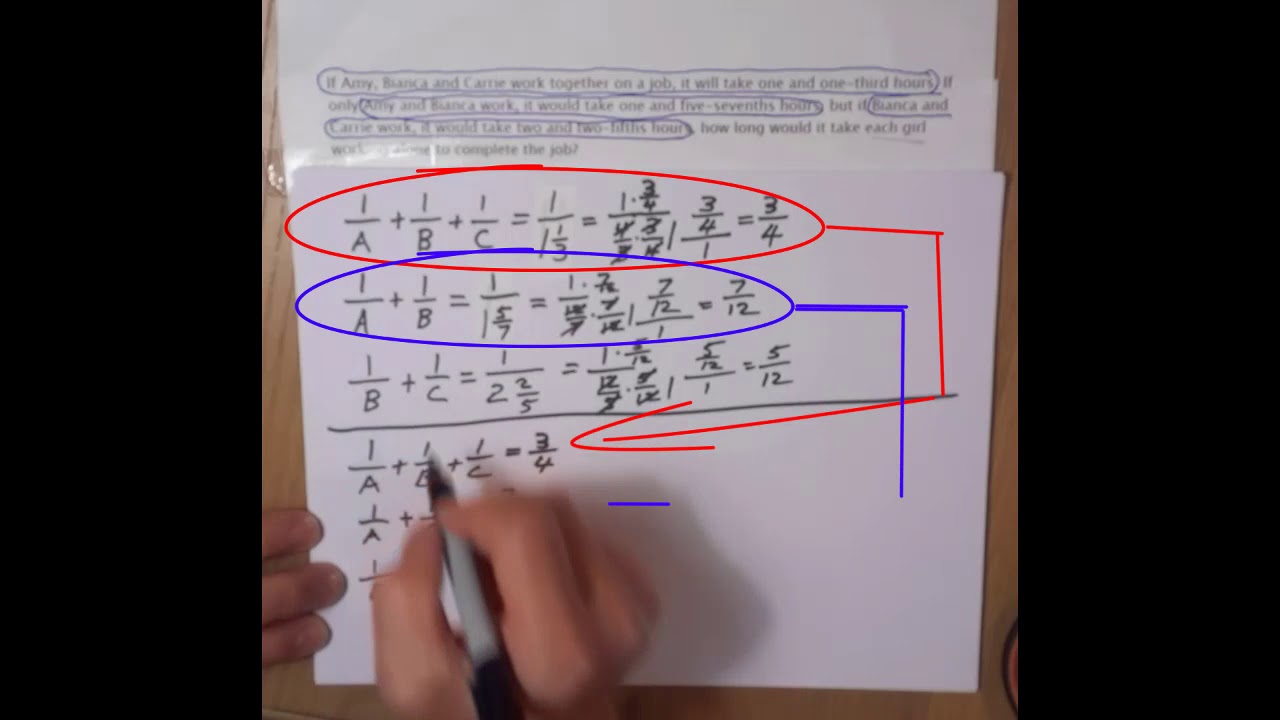 If Amy, Bianca and Carrie work together on a job, it will take one and one-third hours. If
only Amy and Bianca work, it would take one and five-sevenths hours, but if Bianca and
Carrie work, it would take two and two-fifths hours, how long would it take each girl
alone to complete the job?
1/A + 1/B + 1/C = 1/(1 1/3) = (1 · 3/4)/(4/3 · 3/4) | (3/4)/1 = 3/4
1/A + 1/B = 1/(1 5/7) = (1 · 7/12)/(12/7 · 7/12) | (7/12)/1 = 7/12
1/B + 1/C = 1/(2 2/5) = (1 · 5/12)/(12/5 · 5/12) | (5/12)/1 = 5/12
1/A + 1/B + 1/C = 3/4
1/A +